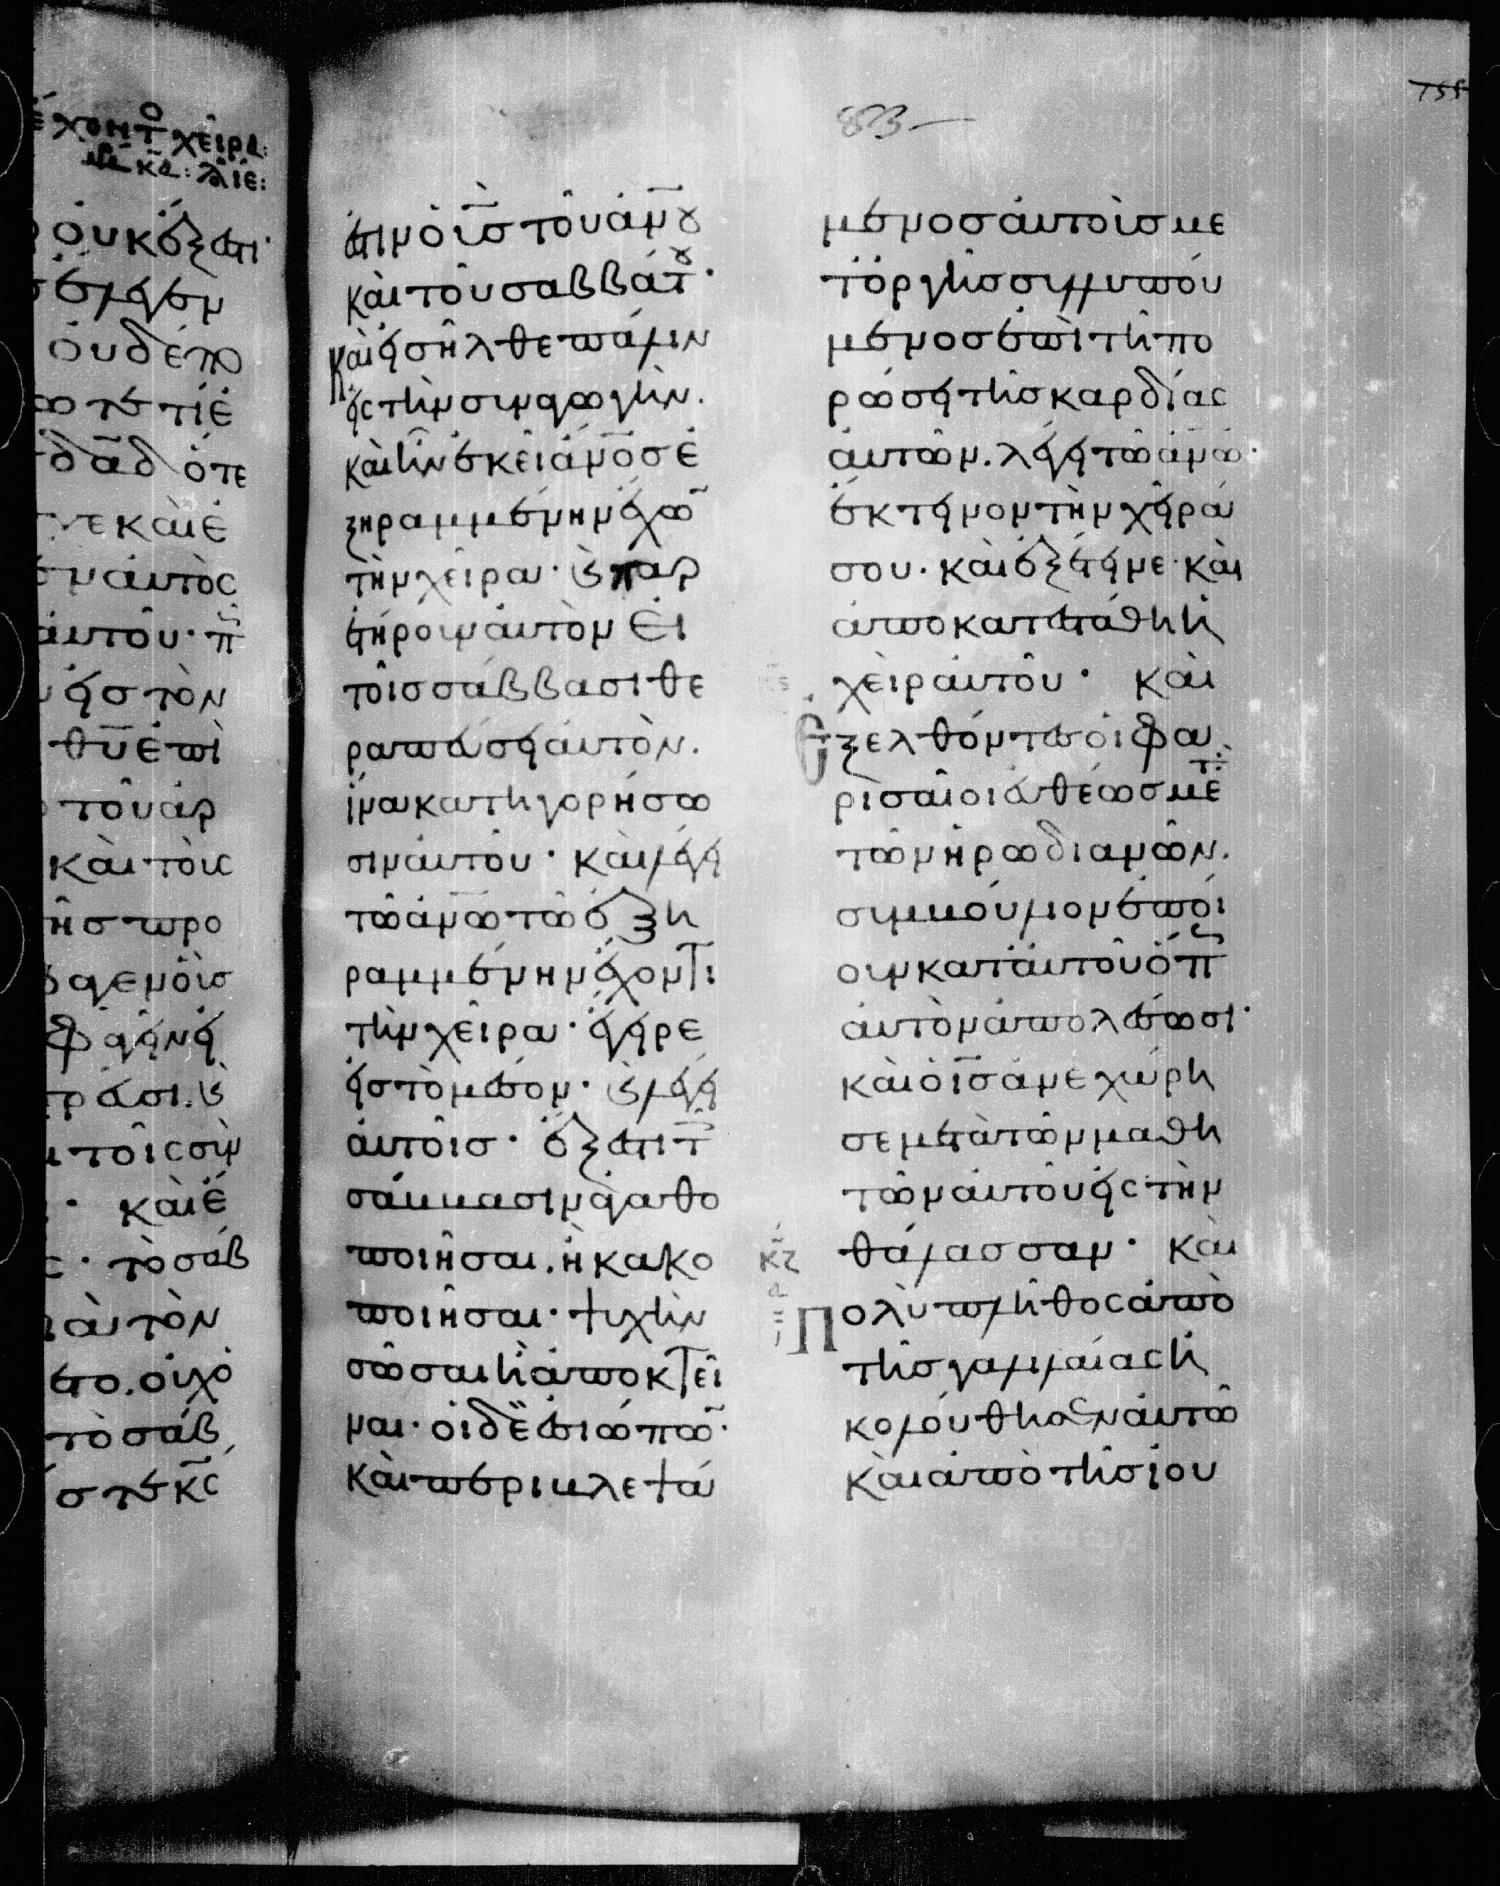 883
155
ἔχοντ χεῖρα:
κδ:
οὐκ ἔξεστι·
οὐδέπο
δᾱδ ὅτε
καὶ ἐ
αὐτὸς
αὐτοῦ· π
εἰς τὸν
θῡ ἐπὶ
τοῦ ἀρ
καὶ τοὺς
ῆς προ
φαγεῖν εἰ
τοῖς σὺν
· καὶ ἔ
· τὸ σάβ
αὐτὸν
το. οὐχ ὁ
τὸ σάβ
κς
ἐστιν ὁ ῑσ τοῦ ἀν̅ου
καὶ τοῦ σαββάτου·
καὶ εἰσῆλθε πάλιν
εἰς τὴν συναγωγὴν.
καὶ ἦν ἐκεῖ ἄν̅οσ ἐ
ξηραμμένην ἔχω̅
τὴν χεῖρα· ϗ παρ
ετήρουν αὐτὸν εἰ
τοῖσ σάββασι θε
ραπεύσει αὐτὸν.
ἵνα κατηγορήσω
σιν αὐτοῦ· καὶ λέγει
τῶ ἀν̅ω τῶ ἐξη
ραμμένην ἔχοντι
τὴν χεῖρα· ἔγειρε
εἰς τὸ μέσον· ϗ λέγει
αὐτοῖσ· ἔξεστι τ
σάββασιν ἀγαθο
ποιῆσαι. ἢ κακο
ποιῆσαι· ψυχὴν
σῶσαι ἢ ἀποκτεῖ
ναι· οἱ δὲ ἐσιώπω̅·
καὶ περιβλεψά
μενοσ αὐτοὺσ με
τ ὀργῆσ συλλυπού
μενοσ ἐπὶ τῆ πο
ρώσει τῆσ καρδίας
αὐτῶν. λέγει τῶ ἀν̅ω·
ἔκτεινον τὴν χεῖρά
σου· καὶ ἐξέτεινε· καὶ
ἀποκατεστάθη ἡ
χεὶρ αὐτοῦ· καὶ
ἐξελθόντεσ οἱ φα
ρισαῖοι εὐθέωσ με τ
τῶν ἡρωδιανῶν.
συμβούλιον ἐποί
ουν κατ αὐτοῦ ὅπ
αὐτὸν ἀπολέσωσι·
καὶ ὁ ῑσ ἀνεχώρη
σε μετὰ τῶν μαθη
τῶν αὐτοῦ εἰς τὴν
θάλασσαν· καὶ
κζ
Πολὺ πλῆθος ἀπὸ
τῆσ γαλιλαίας ἠ
κολούθησεν αὐτῶ
καὶ ἀπὸ τῆσ ἰου